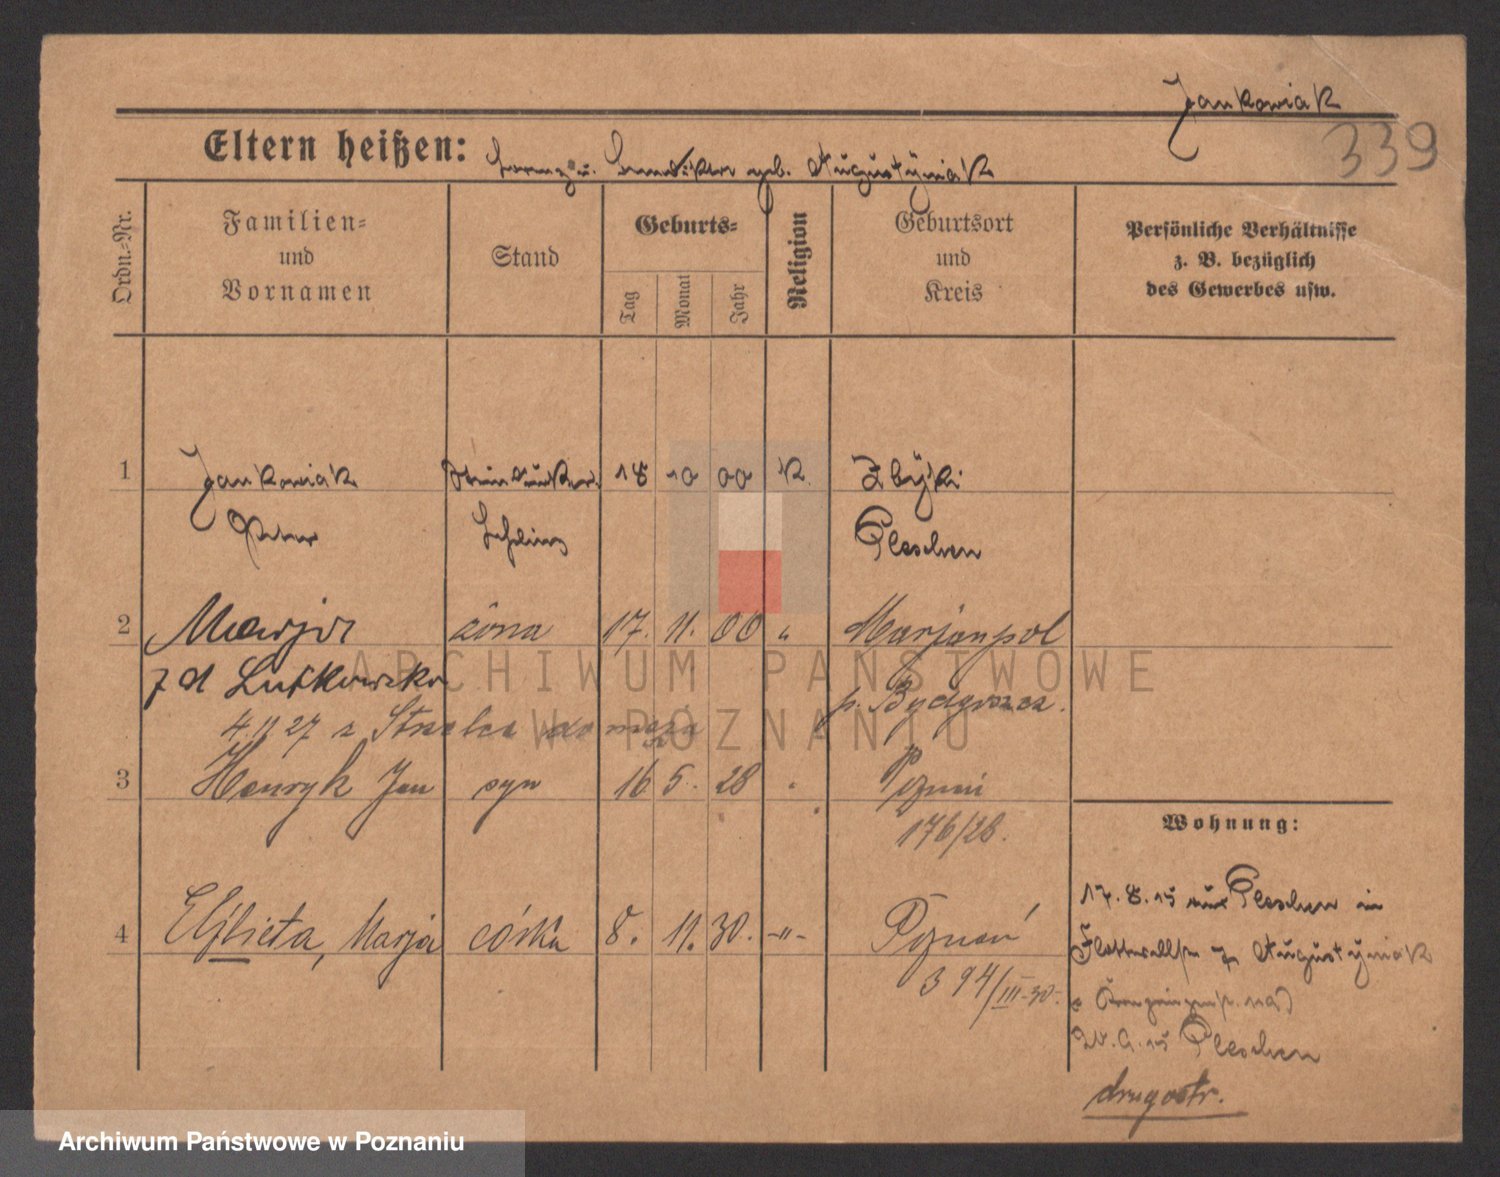 Jankowiak
339
Eltern heißen: Lorenz u. geb. Augustyniak
Ordn.-Nr.
Familien-
und
Vornamen
Stand
Geburts-
Tag
Monat
Jahr
Religion
Geburtsort
und
Kreis
Persönliche Verhältnisse
z. B. bezüglich
des Gewerbes usw.
1 Jankowiak 18 10 00 K.
Peter Lehrling Pleschen
2 Marja żona 17. 11. 00 " Marjanpol
z d Lutkowska p. Bydgoszcz.
4.11 27 z do męża
3 Henryk Jan syn 16 5. 28 Poznań
176/28.
Wohnung:
4 Elżbieta, Marja córka 8. 11. 30. -"- Poznań
394/III-30.
17.8.15 aus Pleschen in
Augustyniak
Pleschen
drugostr.
ARCHIWUM PAŃSTWOWE
W POZNANIU
Archiwum Państwowe w Poznaniu